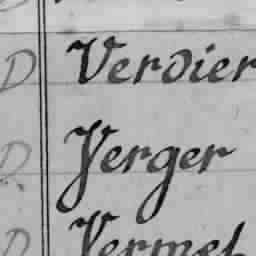 D Verdier
D Verger
D Vermet